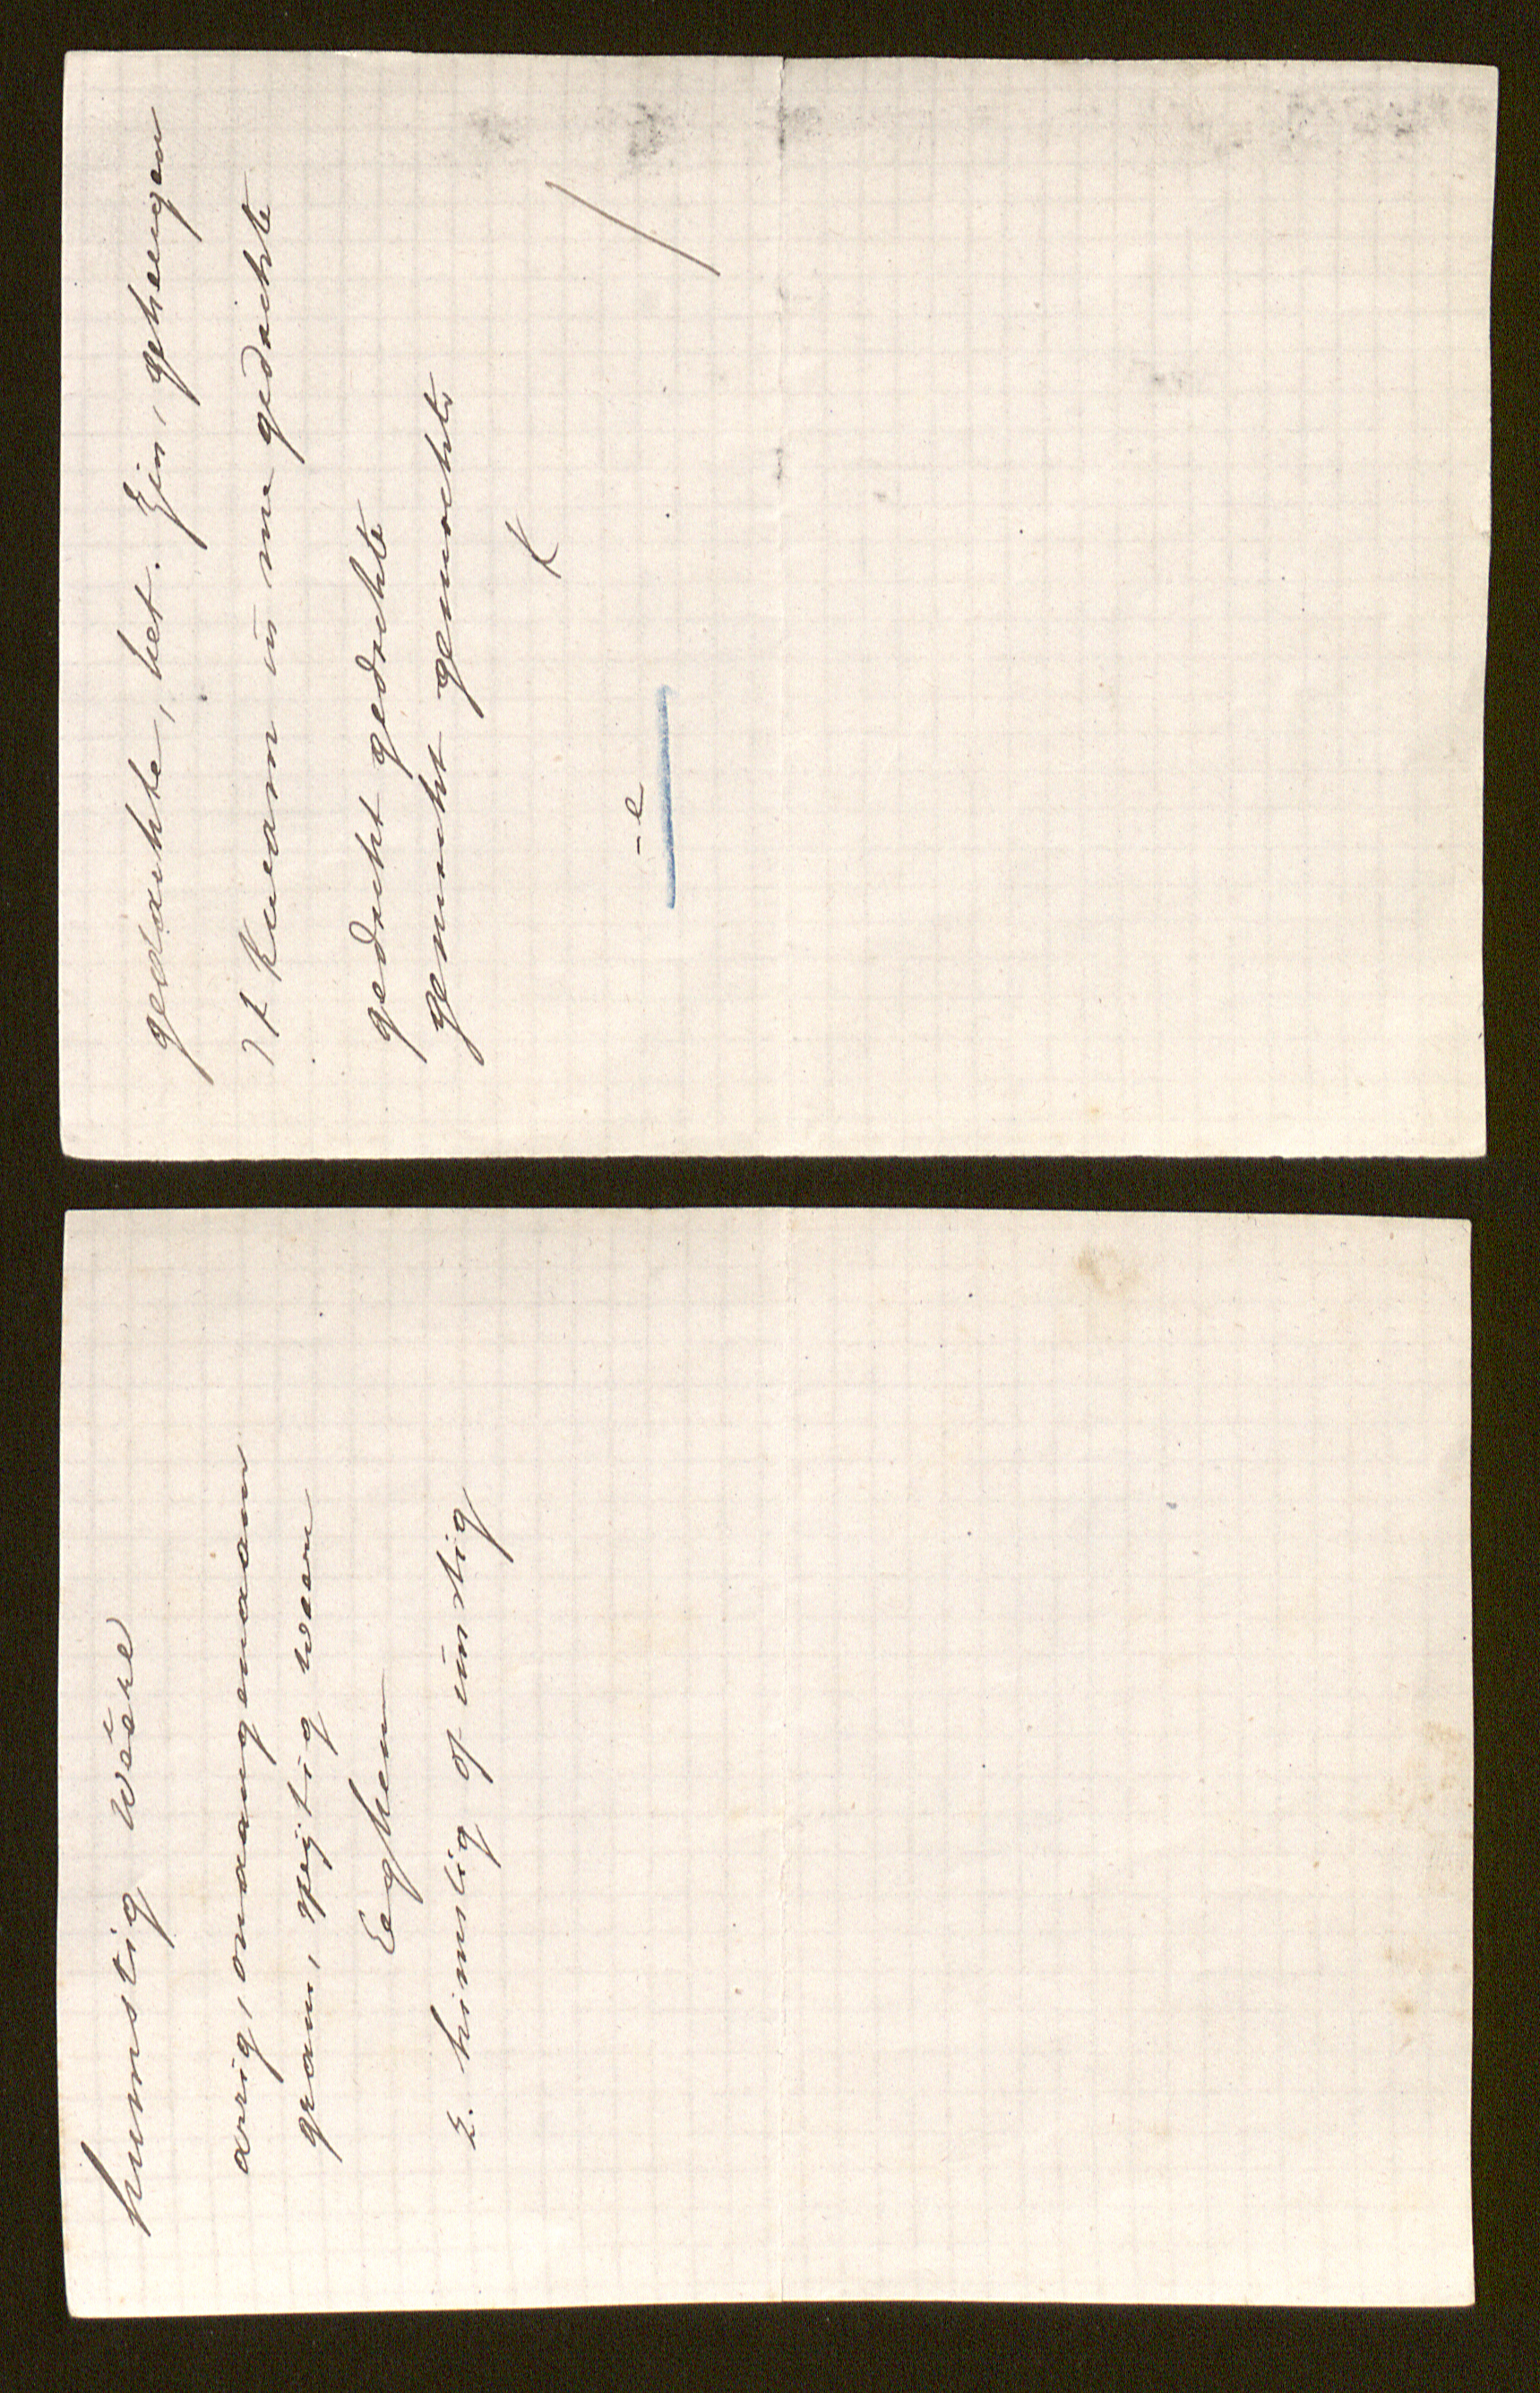 gedachte, het. Zin, geheugen
't kwam in me gedachte
gedacht gedachte
gemacht gemachte
K
-e
hunstig weere
arrig, onaangenaam
gram, spijtig weere
Eeghem
Z. himslig of unstig